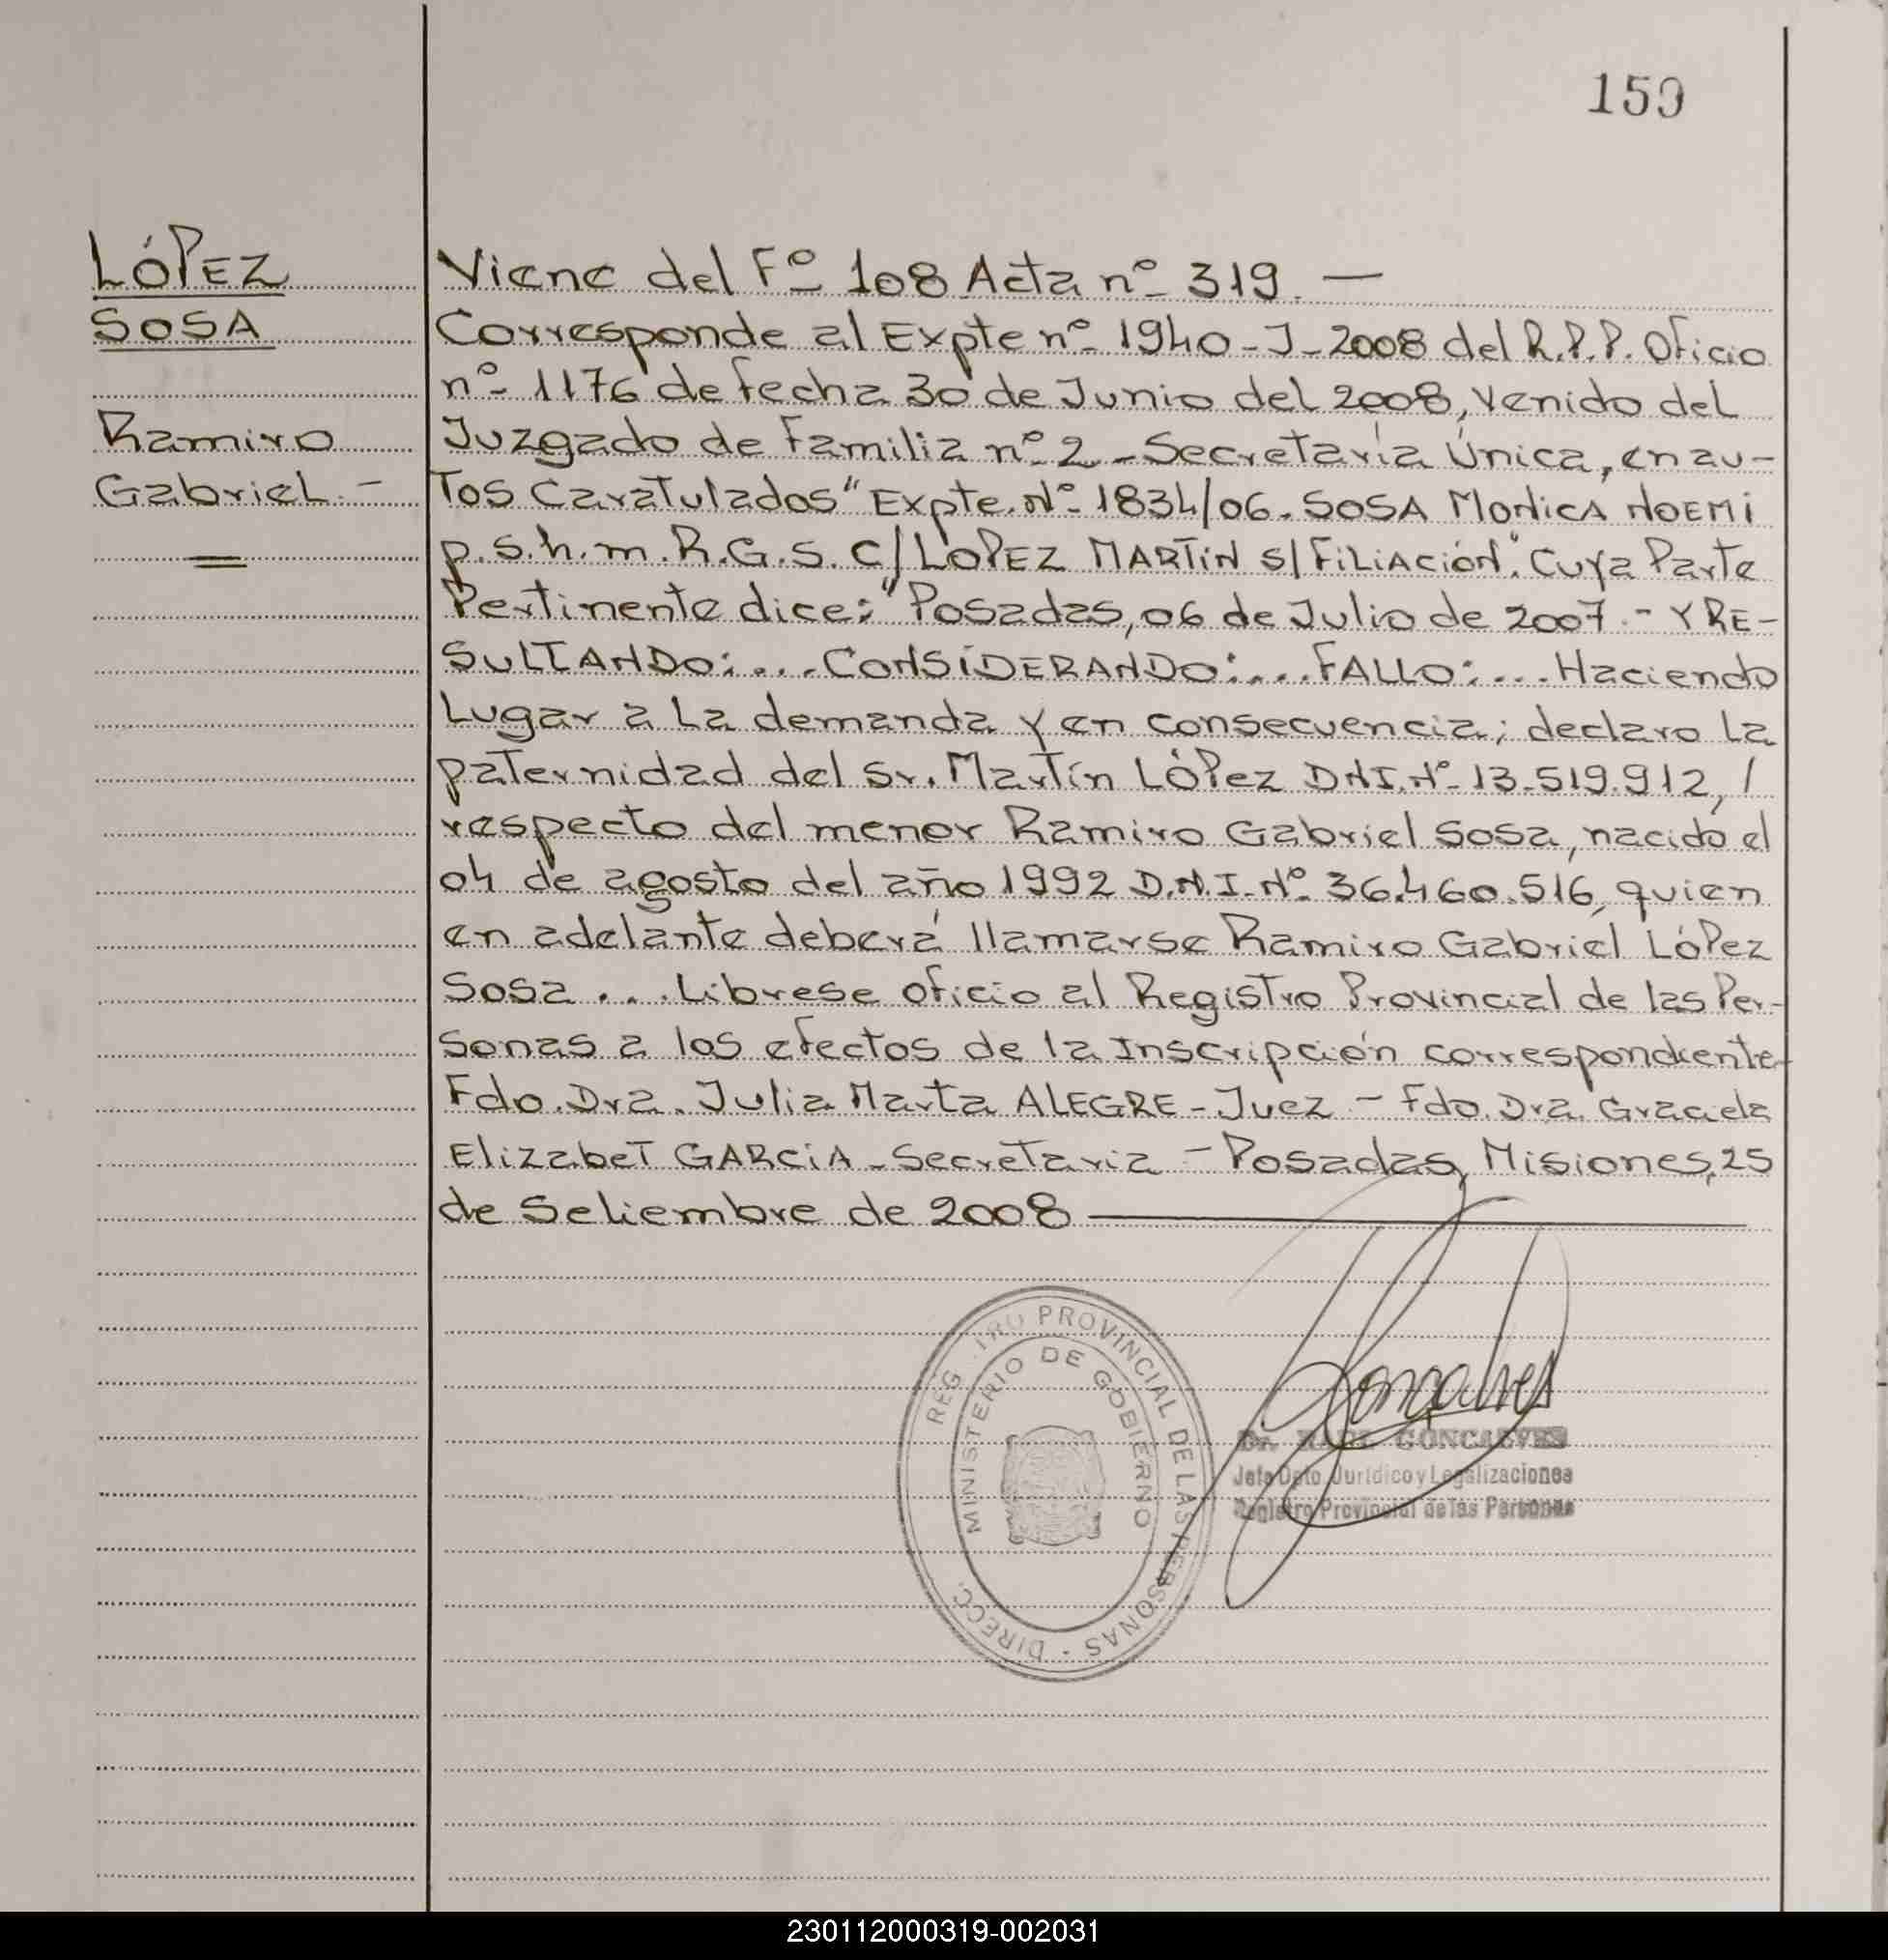 159
LÓPEZ
SOSA
Ramiro
Gabriel.-
Viene del Fº 108 Acta nº 319. —
Corresponde al Expte nº 1940-J-2008 del R.P.P. Oficio
nº 1176 de fecha 30 de Junio del 2008, venido del
Juzgado de Familia nº 2 - Secretaría Única, en au-
tos caratulados "Expte. Nº 1834/06. SOSA MONICA NOEMI
p.s.h.m. R.G.S. C/ LÓPEZ MARTIN S/ FILIACIÓN". Cuya Parte
Pertinente dice: "Posadas, 06 de Julio de 2007.- Y RE-
SULTANDO:.... CONSIDERANDO:.... FALLO:.... Haciendo
Lugar a la demanda y en consecuencia; declaro la
paternidad del Sr. Martín LÓPez DNI. Nº 13.519.912, /
respecto del menor Ramiro Gabriel Sosa, nacido el
04 de agosto del año 1992 D.N.I. Nº 36.460.516, quien
en adelante deberá llamarse Ramiro Gabriel LÓPez
Sosa .... Librese oficio al Registro Provincial de las Per-
sonas a los efectos de la Inscripción correspondiente-
Fdo. Dra. Julia Marta ALEGRE - Juez - Fdo. Dra. Graciela
Elizabet GARCiA - Secretaria - Posadas, Misiones, 25
de Setiembre de 2008
DIRECC. REG TRO PROVINCIAL DE LAS PERSONAS -
MINISTERIO DE GOBIERNO
Gonçalves
Dr. RAUL GONCALVES
Jefe Dpto Jurídico y Legalizaciones
Registro Provincial de las Personas
230112000319-002031